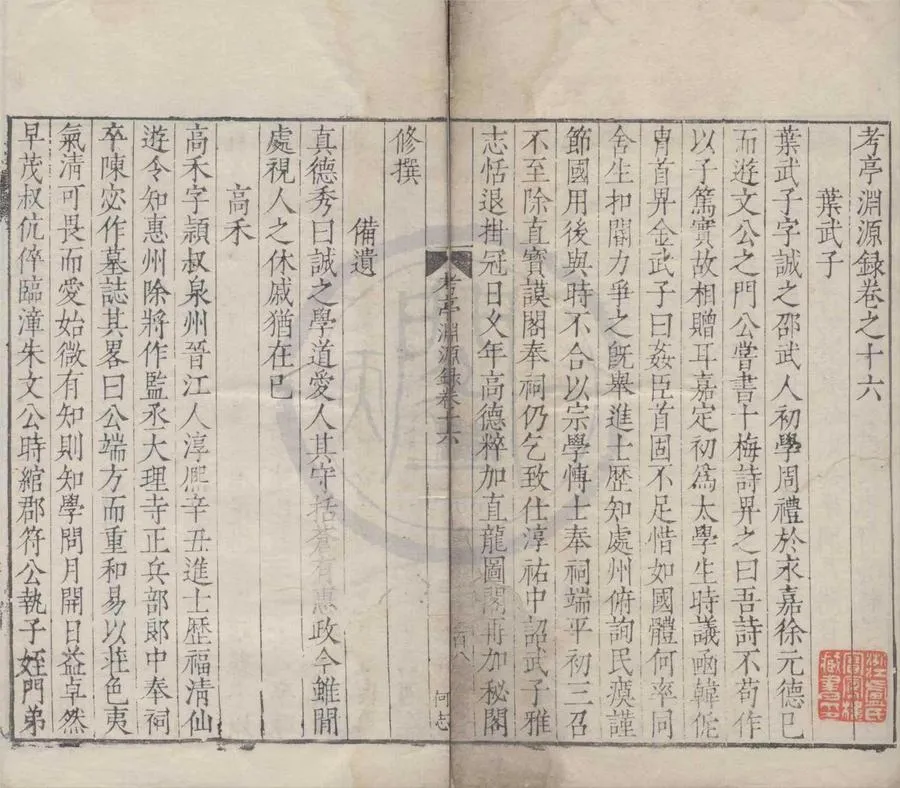 考亭淵源錄卷之十六
葉武子
葉武子字誠之邵武人初學周禮於永嘉徐元德巳
而遊文公之門公嘗書十梅詩畀之曰吾詩不苟作
以子篤實故相贈耳嘉定初爲太學生時議凾韓侂
胄首畀金武子曰姦臣首固不足惜如國體何率同
舍生扣閽力爭之旣舉進士歷知處州俯詢民瘼謹
節國用後與時不合以宗學愽士奉祠端平初三召
不至除直寶謨閣奉祠仍乞致仕淳祐中詔武子雅
志恬退掛冠日乆年高德粹加直龍圖閣再加秘閣
修撰
備遺
真德秀曰誠之學道愛人其守括蒼有惠政今雖閒
處視人之休戚猶在巳
高禾
高禾字頴叔泉州晉江人淳熈辛丑進士歷福清仙
遊令知惠州除將作監丞大理寺正兵部郞中奉祠
卒陳宓作墓誌其畧曰公端方而重和易以莊色夷
氣清可畏而愛始微有知則知學問月開日益卓然
早茂叔伉倅臨漳朱文公時綰郡符公執子姪門弟
考亭淵源錄卷十六
何志
浙江盧氏
藏書